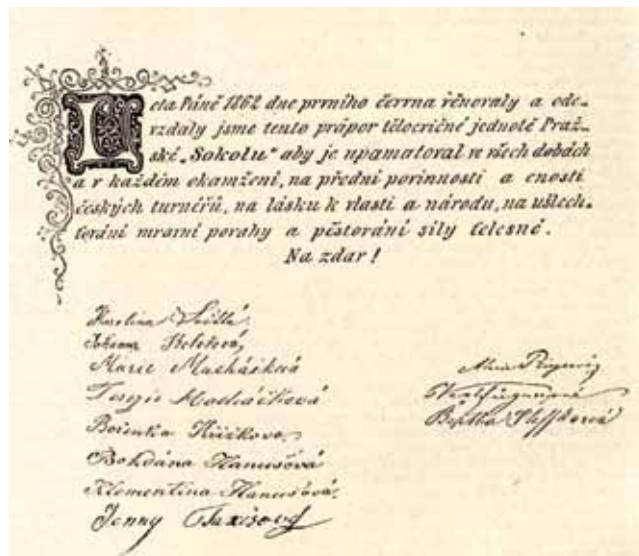 Léta Páně 1862 dne prvního června věnovaly a ode-
vzdaly jsme tento prápor tělocvičné jednotě Praž-
ské „Sokolu“ aby je upamatoval ve všech dobách
a v každém okamžení, na přední povinnosti a cnosti
českých turnérů, na lásku k vlasti a národu, na ušlech-
ťování mravní povahy a pěstování síly tělesné.
Na zdar!
Karolina Světlá
Johanna
Marie Macháčková
Terezie Macháčková
Boženka
Bohdána Hanušová
Klementina Hanušová
Jenny Taxisová